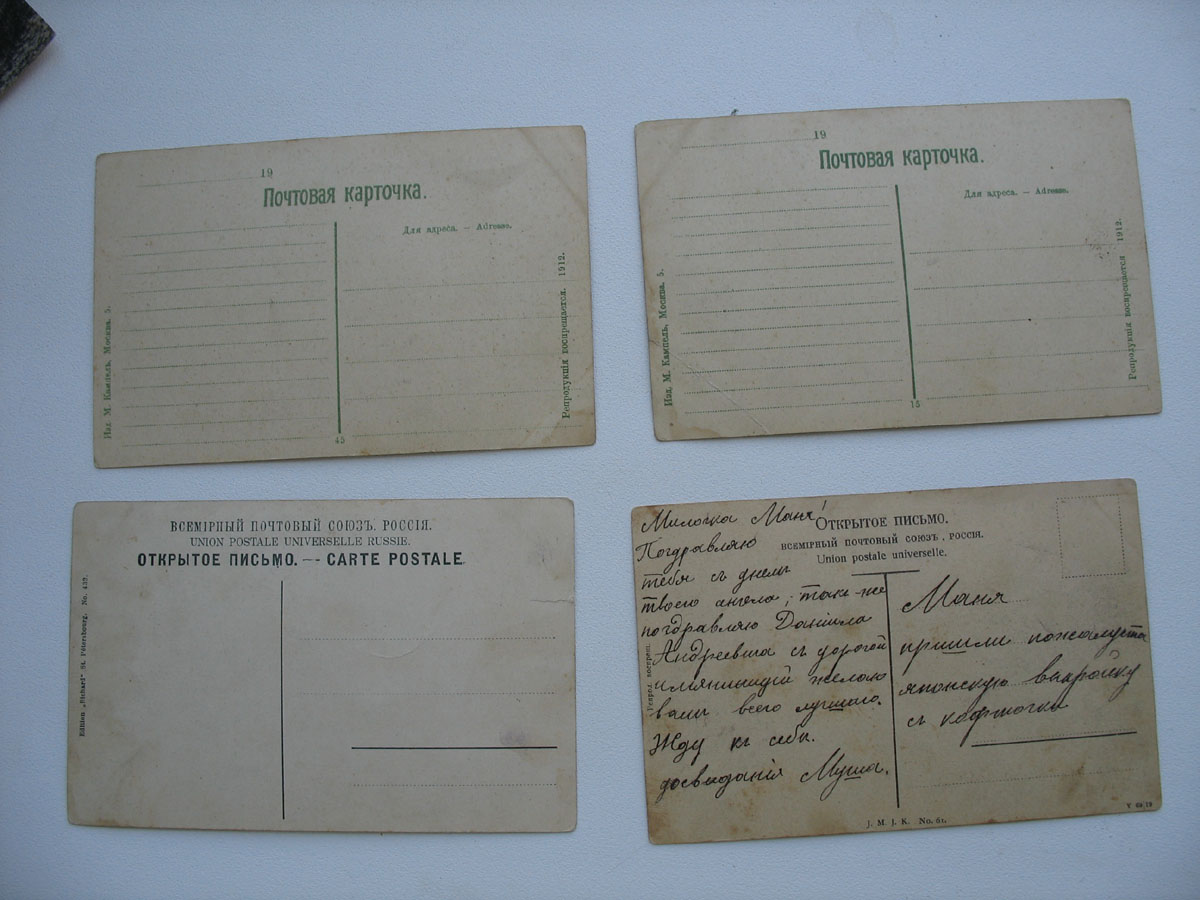 19
Почтовая карточка.
Для адреса. — Adresse.
Изд. М. Кампель, Москва. 5.
45
Репродукцiя воспрещается. 1912.
19
Почтовая карточка.
Для адреса. — Adresse.
Изд. М. Кампель, Москва. 5.
15
Репродукцiя воспрещается 1912.
ВСЕМIРНЫЙ ПОЧТОВЫЙ СОЮЗЪ. РОССIЯ.
UNION POSTALE UNIVERSELLE RUSSIE.
ОТКРЫТОЕ ПИСЬМО. — CARTE POSTALE.
Edition „Richard" St. Pétersbourg. No. 437.
ОТКРЫТОЕ ПИСЬМО.
ВСЕМIРНЫЙ ПОЧТОВЫЙ СОЮЗЪ, РОССIЯ.
Union postale universelle.
Милочка Маня!
Поздравляю
тебя съ днемъ
твоего ангела, такъ-же
поздравляю Данiила
Андреевича съ дорогой
имянинницей желаю
вамъ всего лучшаго.
Жду къ себѣ.
досвиданiя Муша.
Маня
пришли пожалуста
японскую выкройку
съ кофточки
Репрод. воспрещ.
J. M. J. K. No. 61.